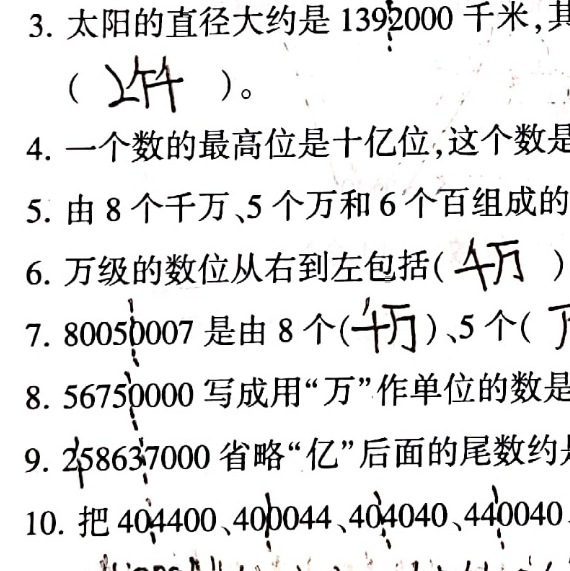 3. 太阳的直径大约是1392000千米,其
( 2千 )。
4. 一个数的最高位是十亿位,这个数是
5. 由8个千万、5个万和6个百组成的
6. 万级的数位从右到左包括(千万 )
7. 80050007是由8个(千万)、5个(
8. 56750000写成用“万”作单位的数是
9. 258637000省略“亿”后面的尾数约是
10. 把404400、400044、404040、440040